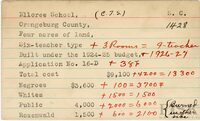 Elloree School, (C.T.S) S. C.
Orangeburg County. 1428
Four acres of land.
Six-teacher type + 3 Rooms = 9-teacher
Built under the 1924-25 budget, + 1926-27
Application No. 16-D + 38F
Total cost $9,100 + 4200 = 13300
Negroes $3,600 + 100 = 3700
Whites + 1500 = 1500
Public 4,000 + 2000 = 6000
Rosenwald 1,500 + 600 = 2100